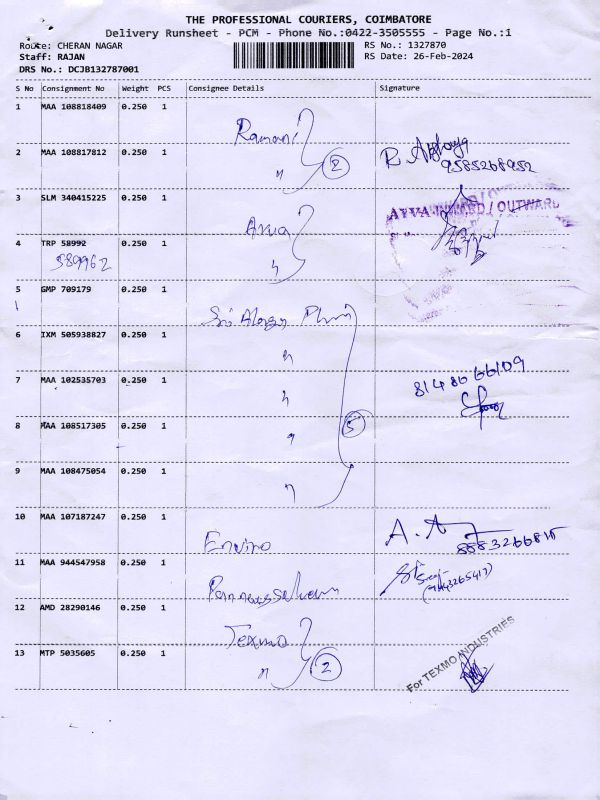 THE PROFESSIONAL COURIERS, COIMBATORE
Delivery Runsheet - PCM - Phone No.:0422-3505555 - Page No.:1
Route: CHERAN NAGAR
RS No.: 1327870
Staff: RAJAN
RS Date: 26-Feb-2024
DRS No.: DCJB132787001
S No Consignment No Weight PCS Consignee Details Signature
1 MAA 108818409 0.250 1 Ramani
2 MAA 108817812 0.250 1 " 2 R.
9585268952
3 SLM 340415225 0.250 1
AVVA INWARD / OUTWARD
4 TRP 58992 0.250 1 "
589962
5 GMP 709179 0.250 1 Sri
6 IXM 505938827 0.250 1 "
7 MAA 102535703 0.250 1 " 8148666109
8 MAA 108517305 0.250 1 " 5
9 MAA 108475054 0.250 1 "
10 MAA 107187247 0.250 1 Enviro A. A
11 MAA 944547958 0.250 1 Panneerselvam
12 AMD 28290146 0.250 1 Texmo
13 MTP 5035605 0.250 1 " 2 For TEXMO INDUSTRIES